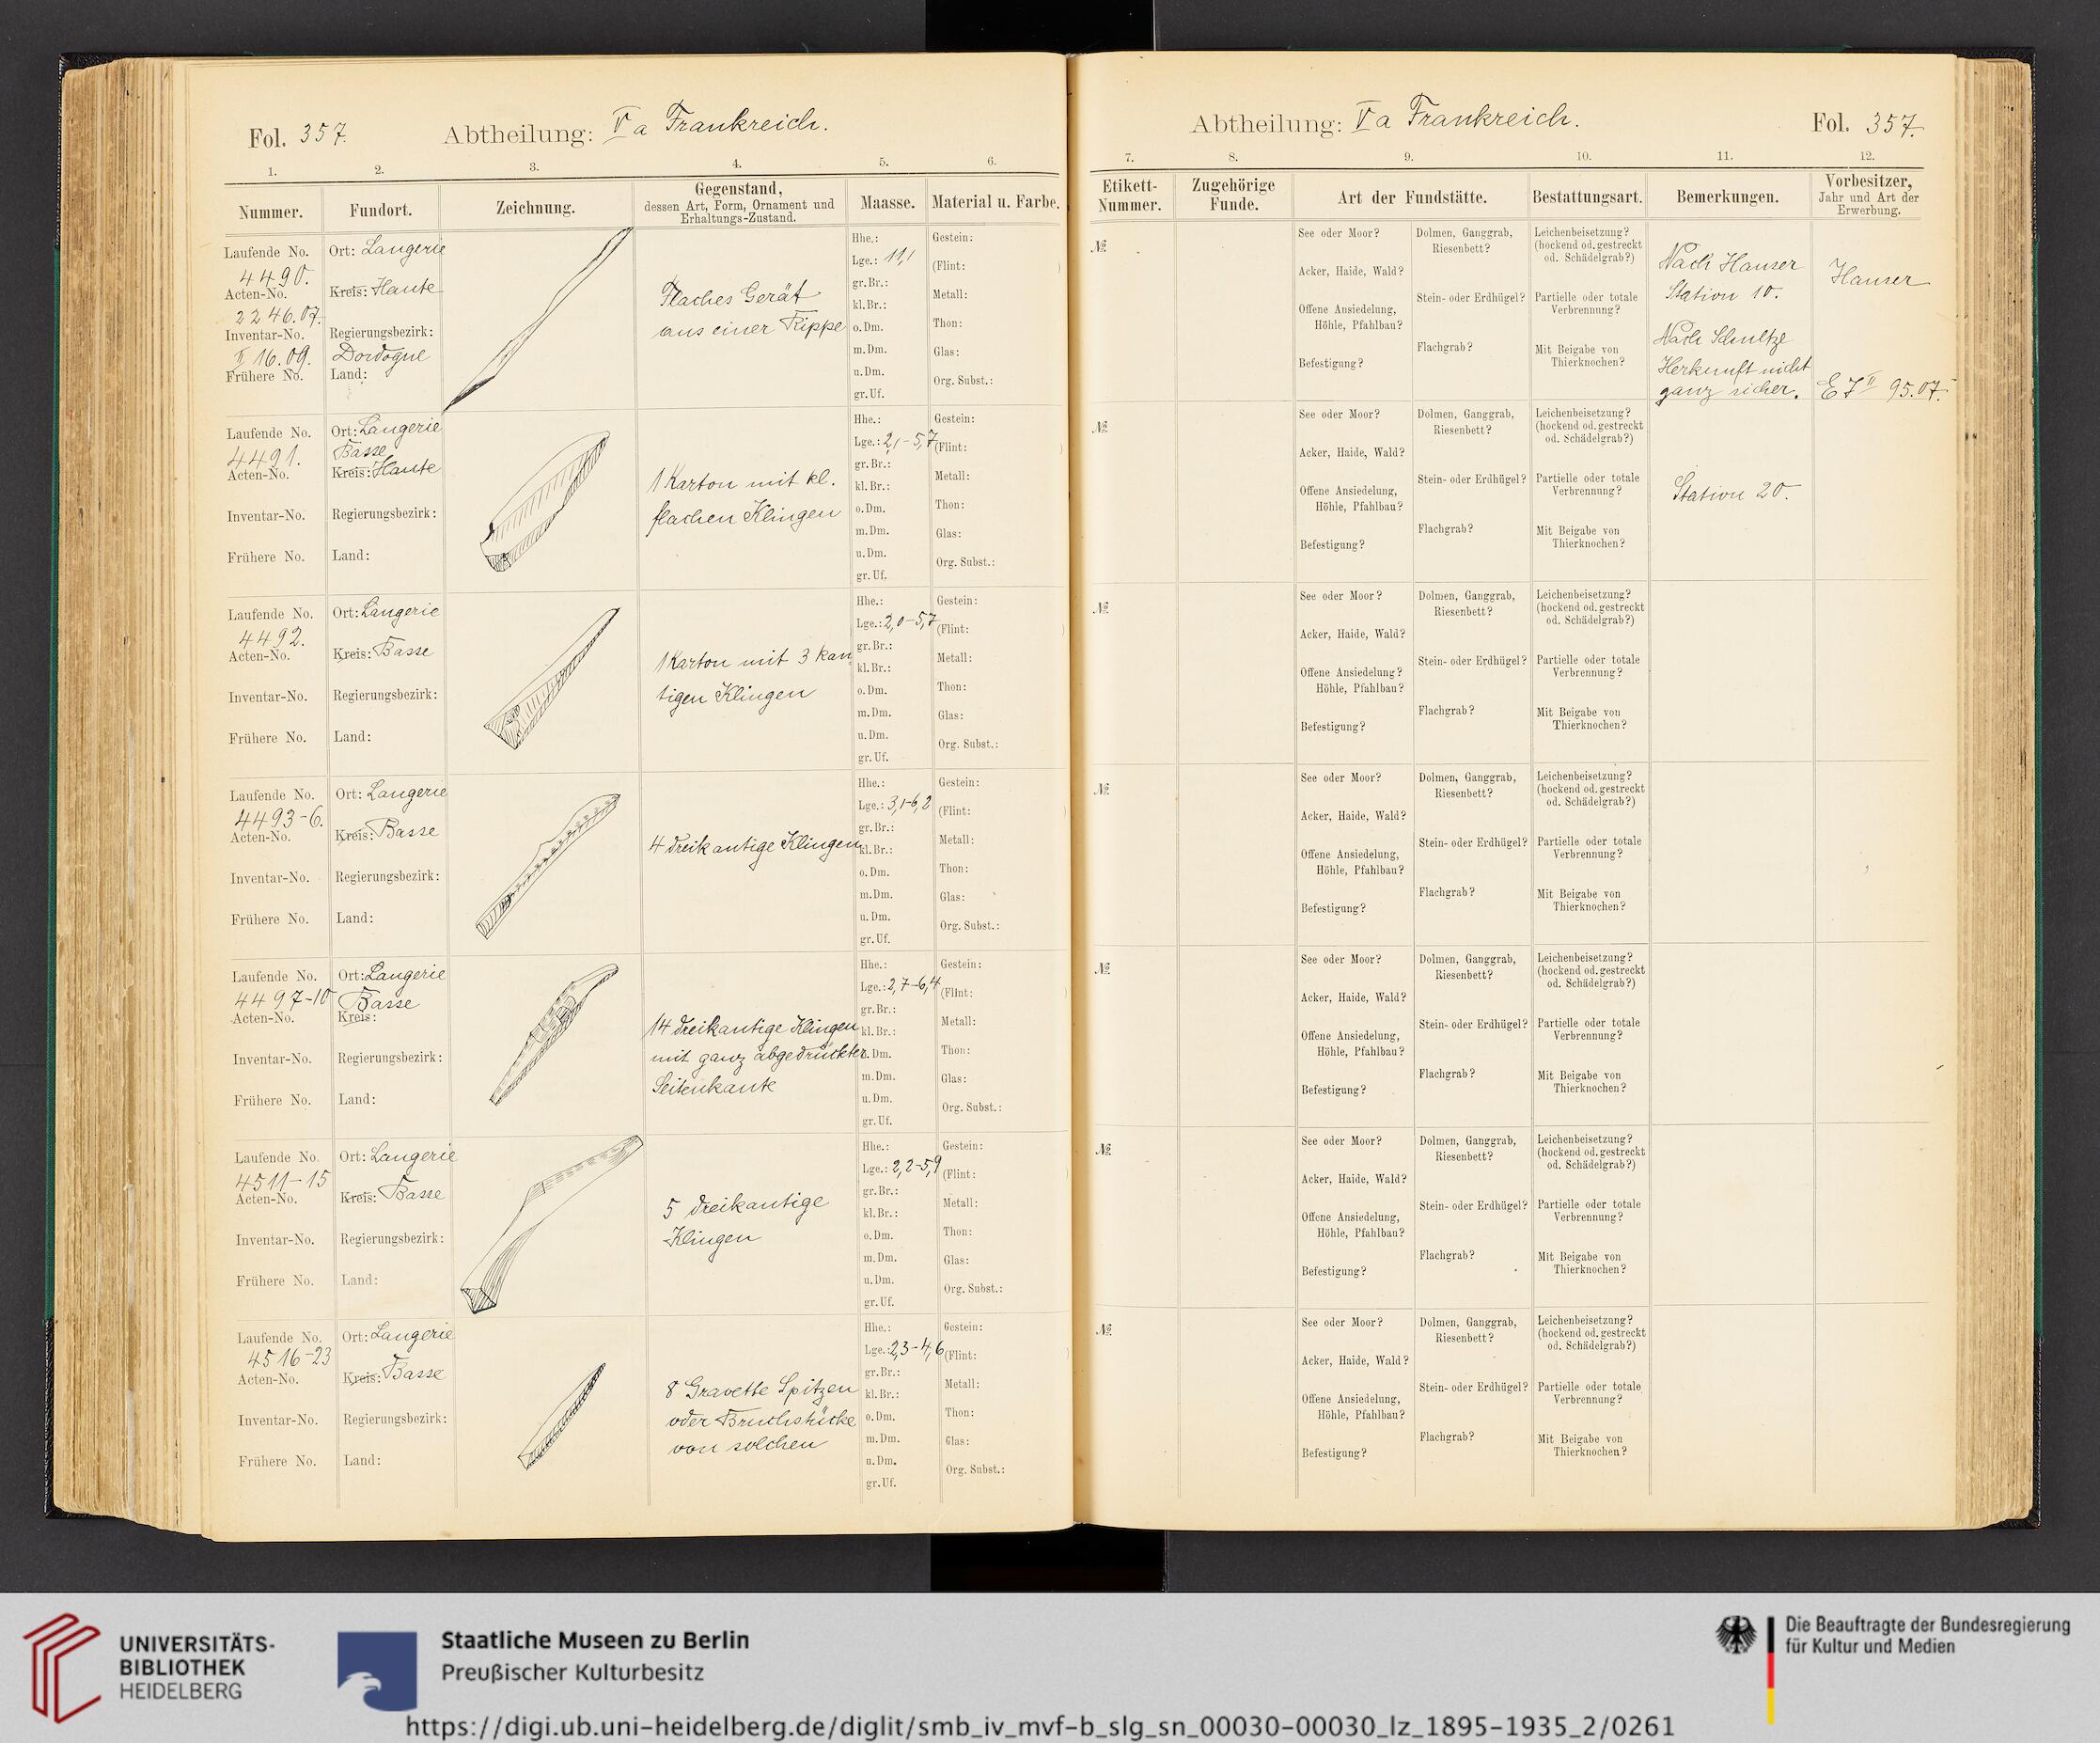 Fol. 357.
Abtheilung: Va Frankreich.
1. 2. 3. 4. 5. 6.
Nummer.
Fundort.
Zeichnung.
Gegenstand,
dessen Art, Form, Ornament und
Erhaltungs-Zustand.
Maasse.
Material u. Farbe.
Laufende No.
4490.
Acten-No.
2246.07.
Inventar-No.
II 16.09.
Frühere No.
Ort: Laugerie
Kreis: Haute
Regierungsbezirk:
Dordogne
Land:
Flaches Gerät
aus einer Rippe
Hhe.:
Lge.: 11,1
gr. Br.:
kl. Br.:
o. Dm.
m. Dm.
u. Dm.
gr. Uf.
Gestein:
(Flint: )
Metall:
Thon:
Glas:
Org. Subst.:
Laufende No.
4491.
Acten-No.
Inventar-No.
Frühere No.
Ort: Laugerie
Basse
Kreis: Haute
Regierungsbezirk:
Land:
1 Karton mit kl.
flachen Klingen
Hhe.:
Lge.: 2,1-5,7
gr. Br.:
kl. Br.:
o. Dm.
m. Dm.
u. Dm.
gr. Uf.
Gestein:
(Flint: )
Metall:
Thon:
Glas:
Org. Subst.:
Laufende No.
4492.
Acten-No.
Inventar-No.
Frühere No.
Ort: Laugerie
Kreis: Basse
Regierungsbezirk:
Land:
1 Karton mit 3 kan
tigen Klingen
Hhe.:
Lge.: 2,0-5,7
gr. Br.:
kl. Br.:
o. Dm.
m. Dm.
u. Dm.
gr. Uf.
Gestein:
(Flint: )
Metall:
Thon:
Glas:
Org. Subst.:
Laufende No.
4493-6.
Acten-No.
Inventar-No.
Frühere No.
Ort: Laugerie
Kreis: Basse
Regierungsbezirk:
Land:
4 dreikantige Klingen
Hhe.:
Lge.: 3,1-6,2
gr. Br.:
kl. Br.:
o. Dm.
m. Dm.
u. Dm.
gr. Uf.
Gestein:
(Flint: )
Metall:
Thon:
Glas:
Org. Subst.:
Laufende No.
4497-10
Acten-No.
Inventar-No.
Frühere No.
Ort: Laugerie
Basse
Kreis:
Regierungsbezirk:
Land:
14 dreikantige Klingen
mit ganz abgedrückter
Seitenkante
Hhe.:
Lge.: 2,7-6,4
gr. Br.:
kl. Br.:
o. Dm.
m. Dm.
u. Dm.
gr. Uf.
Gestein:
(Flint: )
Metall:
Thon:
Glas:
Org. Subst.:
Laufende No.
4511-15
Acten-No.
Inventar-No.
Frühere No.
Ort: Laugerie
Kreis: Basse
Regierungsbezirk:
Land:
5 dreikantige
Klingen
Hhe.:
Lge.: 2,2-5,9
gr. Br.:
kl. Br.:
o. Dm.
m. Dm.
u. Dm.
gr. Uf.
Gestein:
(Flint: )
Metall:
Thon:
Glas:
Org. Subst.:
Laufende No.
4516-23
Acten-No.
Inventar-No.
Frühere No.
Ort: Laugerie
Kreis: Basse
Regierungsbezirk:
Land:
8 Gravette Spitzen
oder Bruchstücke
von solchen
Hhe.:
Lge.: 2,3-4,6
gr. Br.:
kl. Br.:
o. Dm.
m. Dm.
u. Dm.
gr. Uf.
Gestein:
(Flint: )
Metall:
Thon:
Glas:
Org. Subst.:
Abtheilung: Va Frankreich.
Fol. 357.
7. 8. 9. 10. 11. 12.
Etikett-
Nummer.
Zugehörige
Funde.
Art der Fundstätte.
Bestattungsart.
Bemerkungen.
Vorbesitzer,
Jahr und Art der
Erwerbung.
№
See oder Moor?
Acker, Haide, Wald?
Offene Ansiedelung,
Höhle, Pfahlbau?
Befestigung?
Dolmen, Ganggrab,
Riesenbett?
Stein- oder Erdhügel?
Flachgrab?
Leichenbeisetzung?
(hockend od. gestreckt
od. Schädelgrab?)
Partielle oder totale
Verbrennung?
Mit Beigabe von
Thierknochen?
Nach Hauser
Station 10.
Nach Schultze
Herkunft nicht
ganz sicher.
Hauser
E 7 II 95.07.
№
See oder Moor?
Acker, Haide, Wald?
Offene Ansiedelung,
Höhle, Pfahlbau?
Befestigung?
Dolmen, Ganggrab,
Riesenbett?
Stein- oder Erdhügel?
Flachgrab?
Leichenbeisetzung?
(hockend od. gestreckt
od. Schädelgrab?)
Partielle oder totale
Verbrennung?
Mit Beigabe von
Thierknochen?
Station 20.
№
See oder Moor?
Acker, Haide, Wald?
Offene Ansiedelung?
Höhle, Pfahlbau?
Befestigung?
Dolmen, Ganggrab,
Riesenbett?
Stein- oder Erdhügel?
Flachgrab?
Leichenbeisetzung?
(hockend od. gestreckt
od. Schädelgrab?)
Partielle oder totale
Verbrennung?
Mit Beigabe von
Thierknochen?
№
See oder Moor?
Acker, Haide, Wald?
Offene Ansiedelung,
Höhle, Pfahlbau?
Befestigung?
Dolmen, Ganggrab,
Riesenbett?
Stein- oder Erdhügel?
Flachgrab?
Leichenbeisetzung?
(hockend od. gestreckt
od. Schädelgrab?)
Partielle oder totale
Verbrennung?
Mit Beigabe von
Thierknochen?
№
See oder Moor?
Acker, Haide, Wald?
Offene Ansiedelung,
Höhle, Pfahlbau?
Befestigung?
Dolmen, Ganggrab,
Riesenbett?
Stein- oder Erdhügel?
Flachgrab?
Leichenbeisetzung?
(hockend od. gestreckt
od. Schädelgrab?)
Partielle oder totale
Verbrennung?
Mit Beigabe von
Thierknochen?
№
See oder Moor?
Acker, Haide, Wald?
Offene Ansiedelung,
Höhle, Pfahlbau?
Befestigung?
Dolmen, Ganggrab,
Riesenbett?
Stein- oder Erdhügel?
Flachgrab?
Leichenbeisetzung?
(hockend od. gestreckt
od. Schädelgrab?)
Partielle oder totale
Verbrennung?
Mit Beigabe von
Thierknochen?
№
See oder Moor?
Acker, Haide, Wald?
Offene Ansiedelung,
Höhle, Pfahlbau?
Befestigung?
Dolmen, Ganggrab,
Riesenbett?
Stein- oder Erdhügel?
Flachgrab?
Leichenbeisetzung?
(hockend od. gestreckt
od. Schädelgrab?)
Partielle oder totale
Verbrennung?
Mit Beigabe von
Thierknochen?
UNIVERSITÄTS-
BIBLIOTHEK
HEIDELBERG
Staatliche Museen zu Berlin
Preußischer Kulturbesitz
Die Beauftragte der Bundesregierung
für Kultur und Medien
https://digi.ub.uni-heidelberg.de/diglit/smb_iv_mvf-b_slg_sn_00030-00030_lz_1895-1935_2/0261